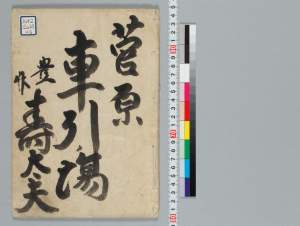 菅原
車引場
豊
作
寿太夫